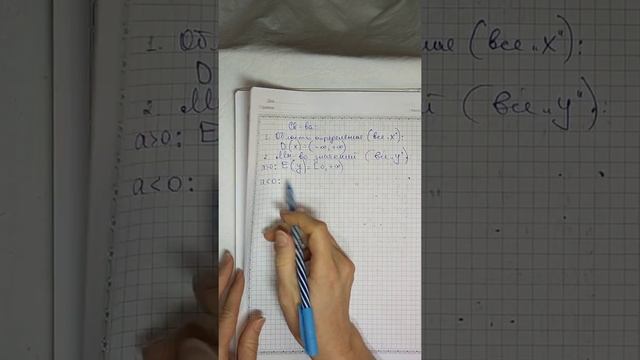 Св-ва:
1. Область определения (все „x"):
D(x) = (-∞, +∞)
2. Мн-во значений (все „y")
a>0: E(y) = [0, +∞)
a<0: